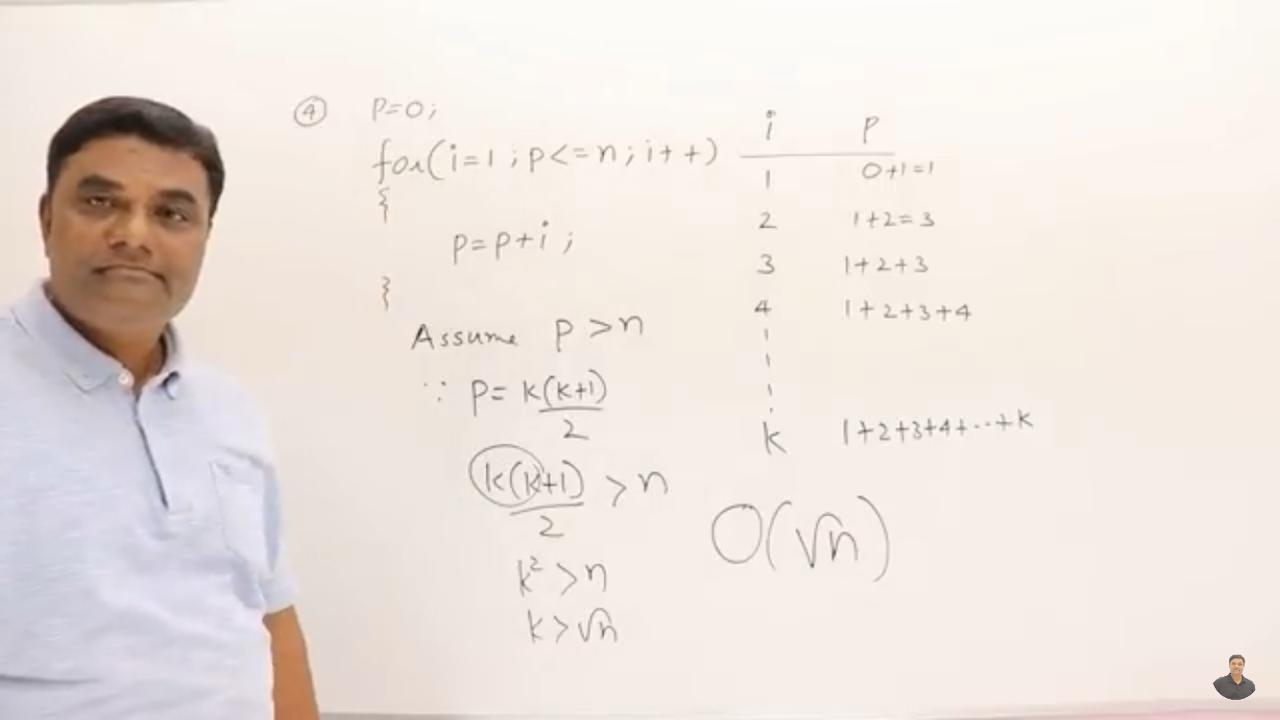 ④ P=0;
for(i=1; p<=n; i++)
{
p=p+i;
}
Assume p>n
∵ p= k(k+1)/2
k(k+1)/2 > n
k² > n
k > √n
i p
1 0+1=1
2 1+2=3
3 1+2+3
4 1+2+3+4
k 1+2+3+4+--+k
O(√n)